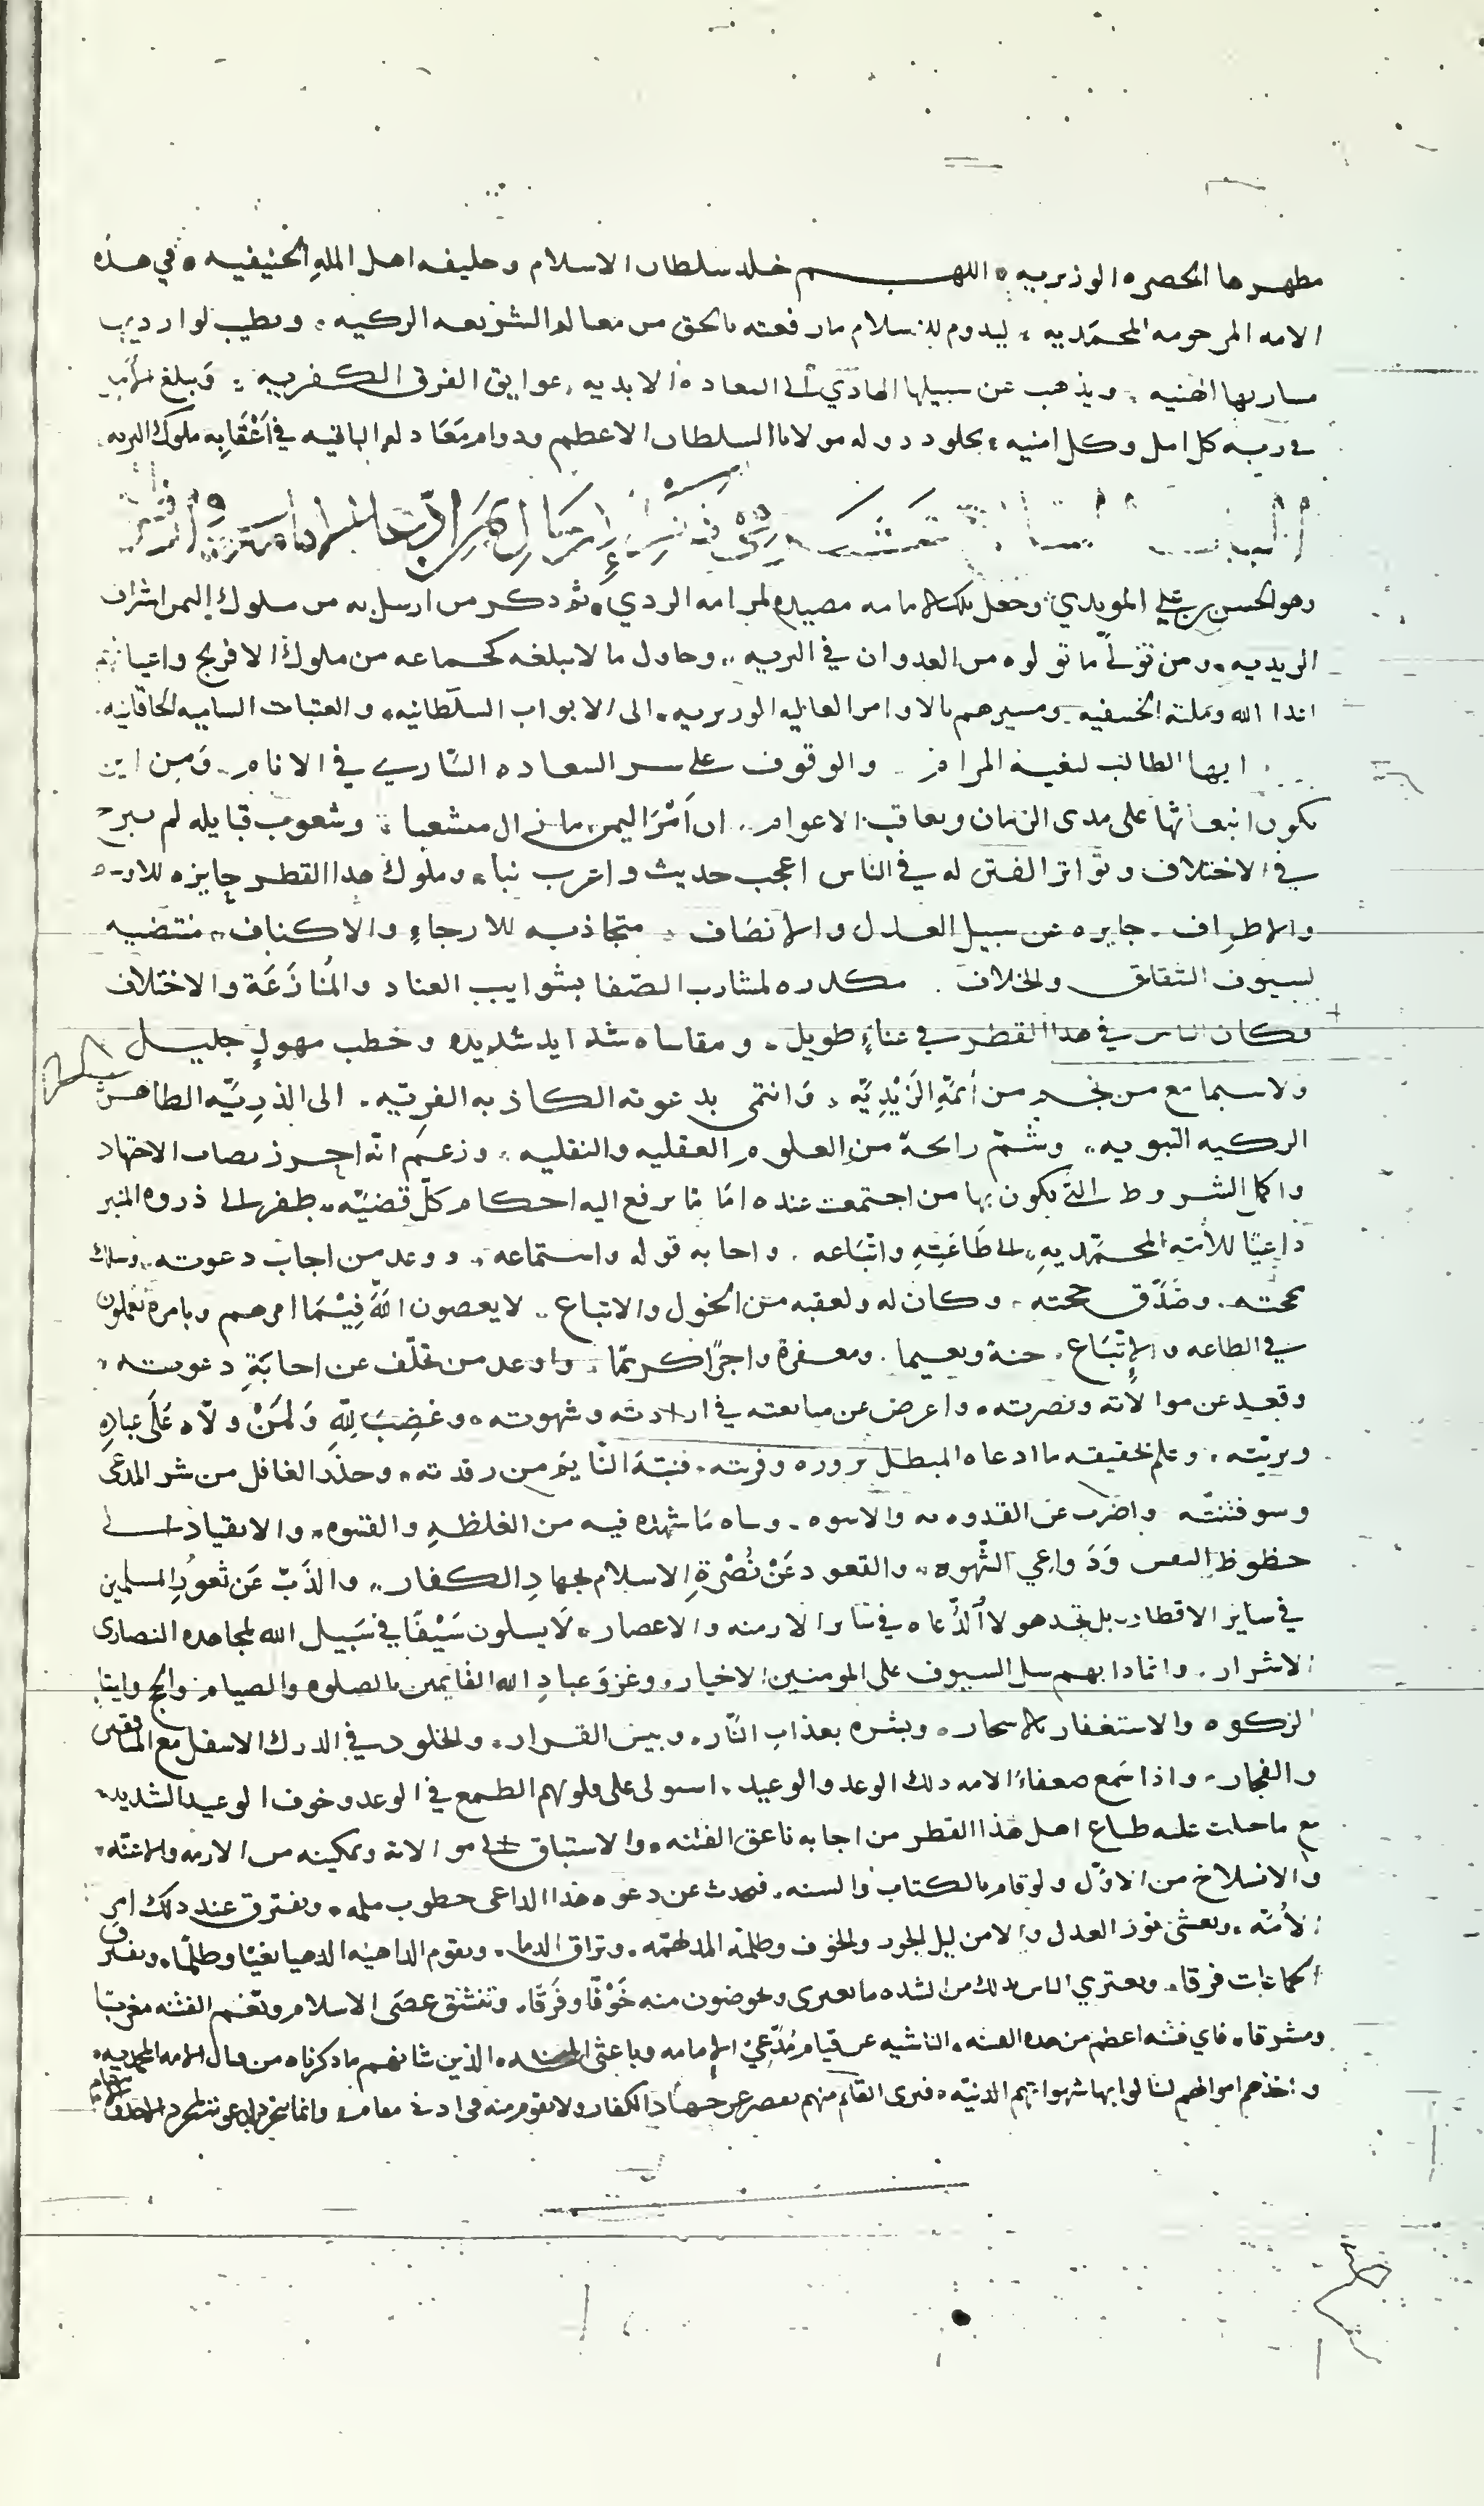 مطهرها الحضره الوزيريه اللهم خلد سلطان الاسلام وخليفه اهل المله الحنيفيه في هذه
الامه المرحومه المحمديه ليدوم للاسلام ما رفعته بالحق من معالم الشريعه الزكيه ويطيب لوارديه
مساربها الهنيه ويذهب عن سبيلها الهادي الى السعاده الابديه عوايق الفرق الكفريه ويبلغ
كل امل وكل امنيه بخلود دوله مولانا السلطان الاعظم ودوام الباقيه في اعقابه ملوك البريه
وهو الحسن بن علي المويدي وجعل تلك الامامه مصيده لمرامه الردي ثم ذكر من ارسل به من ملوك اليمن اشراف
الزيديه ومن تولى ما تولوه من العدوان في البريه وحاول ما لا يبلغه كجماعه من ملوك الافرنج واعيانهم
الله وملته الحنيفيه ومسيرهم بالاوامر العاليه الوزيريه الى الابواب السلطانيه والعتبات الساميه الخاقانيه
ايها الطالب لبغيه المرام والوقوف على سر السعاده الساري في الانام ومن اين
يكون انبعاثها على مدى الزمان وتعاقب الاعوام ان امر اليمن ما زال متشعبا وشعوب قبايله لم تبرح
في الاختلاف وتواتر الفتن له في الناس اعجب حديث واغرب نبا وملوك هذا القطر جايزه
والاطراف جايره عن سبيل العدل والانصاف متجاذبه للارجاء والاكناف منتضيه
لسيوف الشقاق والخلاف مكدره لمشارب الصفا بشوايب العناد والمنازعة والاختلاف
وكان الناس في هذا القطر في عناء طويل ومقاساه شدايد شديده وخطب مهول جليل
ولا سيما مع من نجم من أئمة الزيدية وانتمى بدعوته الكاذبه الفريه الى الذرية الطاهره
الزكيه النبويه وشم رائحة من العلوم العقليه والنقليه وزعم انه احرز نصاب الاجتهاد
واكمل الشروط التي يكون بها من اجتمعت عنده اماما يرفع اليه احكام كل قضيه ظفر الى ذروه المنبر
داعيا للامه المحمديه الى طاعته واتباعه واجابه قوله واستماعه ووعد من اجاب دعوته وسلك
محجته وصدق حجته وكان له ولعقبه من الخول والاتباع لا يعصون الله فيما امرهم وبامره يعملون
في الطاعه والاتباع جنة ونعيما ومغفرة واجرا كريما واوعد من تخلف عن اجابة دعوته
وقعد عن موالاته ونصرته واعرض عن متابعته في ارادته وشهوته وغضب لله ولمن ولاه على عباده
وبريته وعلم بحقيقه ما ادعاه المبطل بزوره وفريته فنبه النايم من رقدته وحذر الغافل من شر المدعى
وسو فتنته واضرب عن القدوه به والاسوه وساه ما شهده فيه من الغلظه والقسوه والانقياد الى
حظوظ النفس ودواعي الشهوه والقعود عن نصرة الاسلام بجهاد الكفار والذب عن ثغور المسلمين
في ساير الاقطار بل تجد هولاء الدعاه في ساير الازمنه والاعصار لا يسلون سيفا في سبيل الله لمجاهده النصارى
الاشرار وانما دابهم سل السيوف على المومنين الاخيار وغزو عباد الله القائمين بالصلوه والصيام والحج وايتا
الزكوه والاستغفار بالاسحار وبشره بعذاب النار وبيس القرار والخلود في الدرك الاسفل مع المنافقين
والفجار واذا سمع ضعفاء الامه ذلك الوعد والوعيد استولى على قلوبهم الطمع في الوعد وخوف الوعيد الشديد
مع ما جبلت عليه طباع اهل هذا القطر من اجابه ناعق الفتنه والاستباق الى موالاته وتمكينه من الازمه والاعنه
والانسلاخ من الاول ولو قام بالكتاب والسنه فيحدث عن دعوه هذا الداعي خطوب ملمه ويفترق عند ذلك امر
الأمه ويغشى نور العدل والامن ليل الجور والخوف وظلمته المدلهمه وتراق الدما وتقوم الداهيه الدهيا بغيا وظلما ويفترق
الجماعات فرقا ويعتري الناس بذلك من الشده ما يعتري ويخوضون منه خوفا وفرقا وتنشق عصى الاسلام وتعم الفتنه مغربا
ومشرقا فاي فتنه اعظم من هذه الفتنه الناشيه عن قيام مدعي الامامه وباعثي الذين شانهم ما ذكرناه من قتال الامه المحمديه
واخذهم اموالهم لينالوا بها شهواتهم الدنيه فترى القائم منهم يقصر عن جهاد الكفار ولا يقوم منه في ادنى مقام وانما